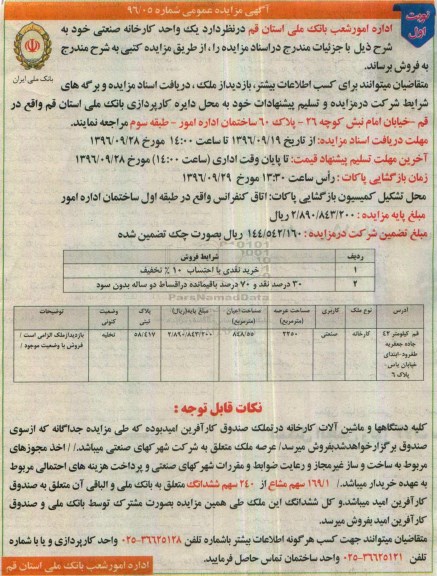 آگهی مزایده عمومی شماره ۹۶/۰۵
نوبت اول
بانک ملی ایران
اداره امورشعب بانک ملی استان قم درنظردارد یک واحد کارخانه صنعتی خود به
شرح ذیل با جزئیات مندرج دراسناد مزایده را ، از طریق مزایده کتبی به شرح مندرج
به فروش برساند.
متقاضیان میتوانند برای کسب اطلاعات بیشتر، بازدیداز ملک ، دریافت اسناد مزایده و برگه های
شرایط شرکت درمزایده و تسلیم پیشنهادات خود به محل دایره کارپردازی بانک ملی استان قم واقع در
قم -خیابان امام نبش کوچه ۲۶ - پلاک ۶۰ ساختمان اداره امور - طبقه سوم مراجعه نمایند.
مهلت دریافت اسناد مزایده: از تاریخ ۱۳۹۶/۰۹/۱۹ تا ساعت ۱۴:۰۰ مورخ ۱۳۹۶/۰۹/۲۸
آخرین مهلت تسلیم پیشنهاد قیمت: تا پایان وقت اداری (ساعت ۱۴:۰۰) مورخ ۱۳۹۶/۰۹/۲۸
زمان بازگشایی پاکات : راس ساعت ۱۳:۳۰ مورخ ۱۳۹۶/۰۹/۲۹
محل تشکیل کمیسیون بازگشایی پاکات: اتاق کنفرانس واقع در طبقه اول ساختمان اداره امور
مبلغ پایه مزایده : ۲/۸۹۰/۸۴۳/۲۰۰ ریال
مبلغ تضمین شرکت درمزایده : ۱۴۴/۵۴۲/۱۶۰ ریال بصورت چک تضمین شده
ردیف شرایط فروش
۱ خرید نقدی با احتساب ۱۰ % تخفیف
۲ ۳۰ درصد نقد و ۷۰ درصد باقیمانده دراقساط دو ساله بدون سود
ParsNamadData
آدرس نوع ملک کاربری مساحت عرصه (مترمربع) مساحت اعیان (مترمربع) مبلغ پایه(ریال) پلاک ثبتی وضعیت کنونی توضیحات
قم کیلومتر ۴۲ جاده جعفریه طغرود-ابتدای خیابان یاس- پلاک ۶ کارخانه صنعتی ۲۲۵۰ ۸۴۸/۵۵ ۲/۸۹۰/۸۴۳/۲۰۰ ۵۸/۴۱۷ تخلیه بازدیدازملک الزامی است / فروش با وضعیت موجود /
نکات قابل توجه :
کلیه دستگاهها و ماشین آلات کارخانه درتملک صندوق کارآفرین امیدبوده که طی مزایده جداگانه که ازسوی
صندوق برگزارخواهدشدبفروش میرسد/ عرصه ملک متعلق به شرکت شهرکهای صنعتی میباشد./ اخذ مجوزهای
مربوط به ساخت و ساز غیرمجاز و رعایت ضوابط و مقررات شهرکهای صنعتی و پرداخت هزینه های احتمالی مربوط
به عهده خریدار میباشد./ ۱۶۹/۱ سهم مشاع از ۲۴۰ سهم ششدانگ متعلق به بانک ملی و الباقی آن متعلق به صندوق
کارآفرین امید میباشد.و کل ششدانگ این ملک طی همین مزایده بصورت مشترک توسط بانک ملی و صندوق
کارآفرین امید بفروش میرسد.
متقاضیان میتوانند جهت کسب هر گونه اطلاعات بیشتر باشماره تلفن ۳۶۶۲۵۱۲۸-۰۲۵ واحد کارپردازی و یا با شماره
تلفن ۳۶۶۲۵۱۲۱-۰۲۵ واحد ساختمان تماس حاصل فرمایید.
اداره امورشعب بانک ملی استان قم